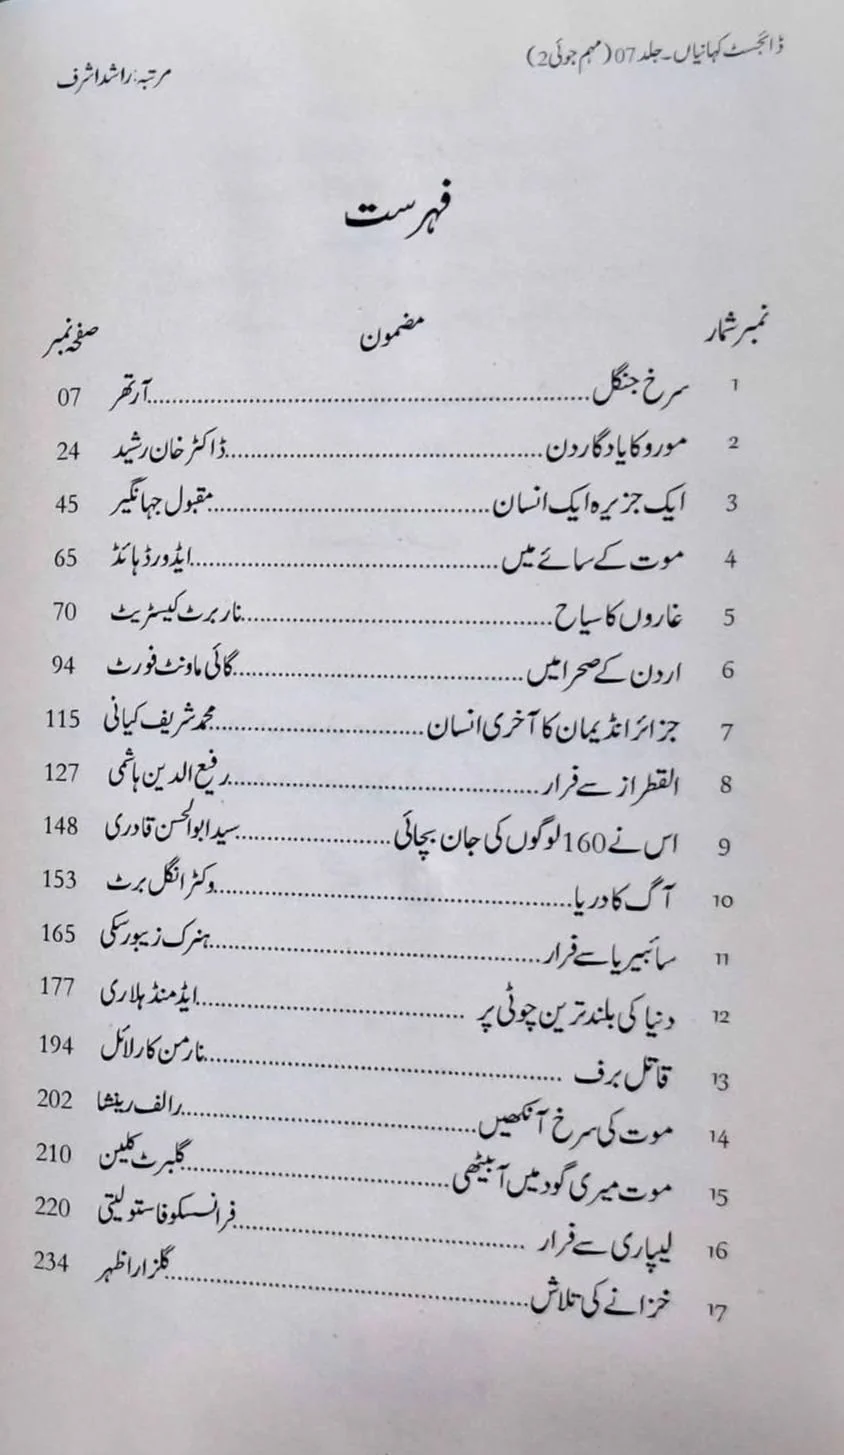 ڈائجسٹ کہانیاں۔جلد 07 (مہم جوئی 2) مرتبہ: راشد اشرف
فہرست
نمبر شمار مضمون صفحہ نمبر
1 سرخ جنگل........................................آرتھر 07
2 مورو کا یادگار دن........................................ڈاکٹر خان رشید 24
3 ایک جزیرہ ایک انسان........................................مقبول جہانگیر 45
4 موت کے سائے میں........................................ایڈورڈ ہائڈ 65
5 غاروں کا سیاح........................................ناربرٹ کیسٹریٹ 70
6 اردن کے صحرا میں........................................گائی ماونٹ فورٹ 94
7 جزائر انڈیمان کا آخری انسان........................................محمد شریف کیانی 115
8 القطراز سے فرار........................................رفیع الدین ہاشمی 127
9 اس نے 160 لوگوں کی جان بچائی........................................سید ابوالحسن قادری 148
10 آگ کا دریا........................................وکٹر انگل برٹ 153
11 سائبیریا سے فرار........................................ہنرک زیبورسکی 165
12 دنیا کی بلند ترین چوٹی پر........................................ایڈمنڈ ہلاری 177
13 قاتل برف........................................نارمن کارلائل 194
14 موت کی سرخ آنکھیں........................................رالف رینشا 202
15 موت میری گود میں آ بیٹھی........................................گلبرٹ کلین 210
16 لیپاری سے فرار........................................فرانسسکو فاستولیتی 220
17 خزانے کی تلاش........................................گلزار اظہر 234